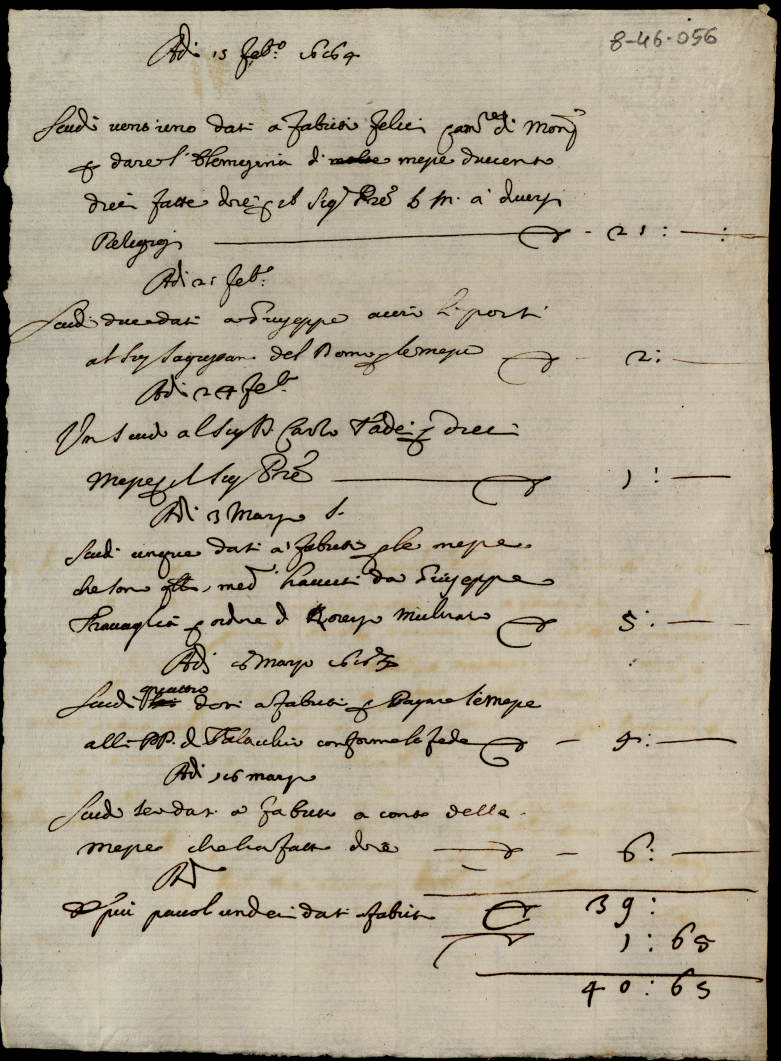 8-46-056
Adi 15 feb.º 1664
Scudi vent uno dati a fabritio felici cam.re di Mons.
p dare l'elemosina di messe ducento
dieci fatte dire p il Sig.r Pre b. m. à diversi
Religiosi 21:
Adi 21 feb.º
Scudi due dati a Giuseppe acciò li porti
al Sig. Sagrestano del Domo p le messe 2:
Adi 24 feb.º
Un scudo al Sig. D. Carlo Tadei p dieci
messe p il Sig. Pre 1:
Adi 3 Marzo
Scudi cinque dati a fabritio p le messe
che son havuti da Giuseppe
Travaglia p ordine di 5:
Adi Marzo
Scudi quattro dati a fabritio p Pagare le messe
alli PP. di conforme la fede 4:
Adi 16 marzo
Scudi sei dati a fabritio a conto delle
messe che ha fatte dire 6:
Adi
E più pauoli undeci dati a fabritio 39:
1:65
40:65